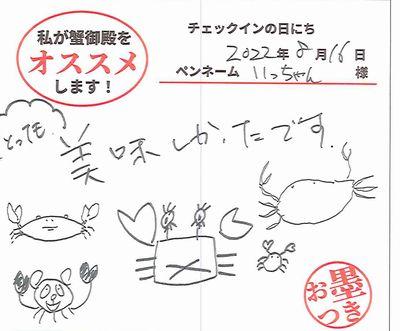 私が蟹御殿を
オススメ
します！
チェックインの日にち
2022年8月16日
ペンネーム いっちゃん 様
とっても
美味しかったです.
お墨つき